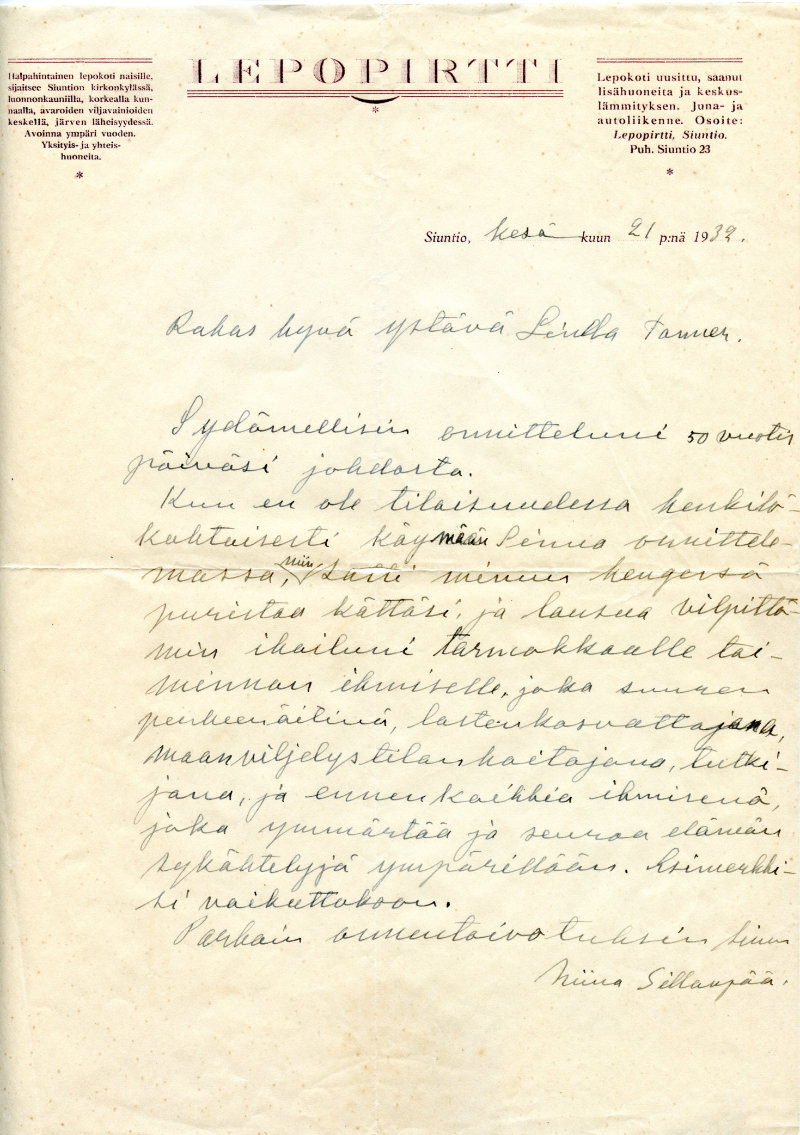 LEPOPIRTTI
Halpahintainen lepokoti naisille,
sijaitsee Siuntion kirkonkylässä,
luonnonkauniilla, korkealla kun-
naalla, avaroiden viljavainioiden
keskellä, järven läheisyydessä.
Avoinna ympäri vuoden.
Yksityis- ja yhteis-
huoneita.
*
*
Lepokoti uusittu, saanut
lisähuoneita ja keskus-
lämmityksen. Juna- ja
autoliikenne. Osoite:
Lepopirtti, Siuntio.
Puh. Siuntio 23
*
Siuntio, kesä kuun 21 p:nä 1932.
Rakas hyvä ystävä Linda Tanner.
Sydämellisin onnitteluni 50 vuotis
päiväsi johdosta.
Kun en ole tilaisuudessa henkilö-
kohtaisesti käymään Sinua onnittele-
massa, niin salli minun hengessä
puristaa kättäsi, ja lausua vilpittö-
min ihailuni tarmokkaalle toi-
minnan ihmiselle, joka suuren
perheenäitinä, lastenkasvattajana,
maanviljelystilanhoitajana, tutki-
jana, ja ennenkaikkia ihmisenä,
joka ymmärtää ja seuraa elämän
sykähtelyjä ympärillään. Esimerkki-
si vaikuttakoon.
Parhain onnentoivotuksin Sinun
Miina Sillanpää.